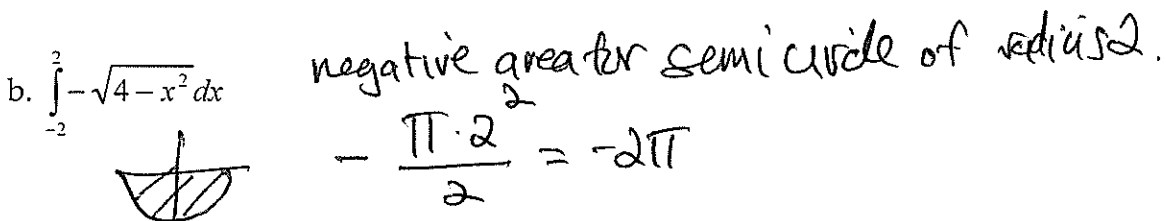 b. ∫_{-2}^{2} -√(4 - x²) dx
negative area for semi circle of radius 2.
- (π·2²)/2 = -2π